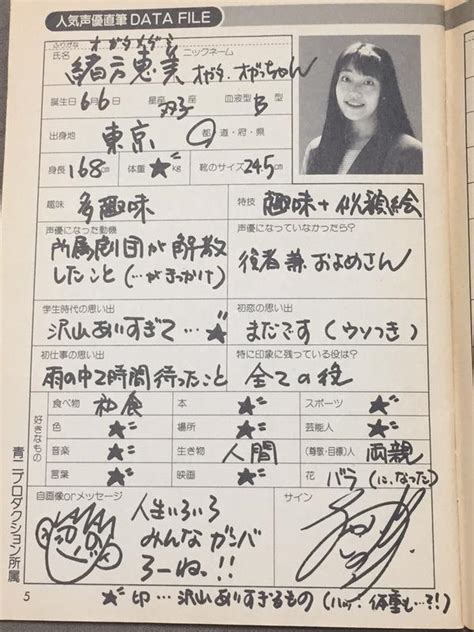 人気声優直筆 DATA FILE
ふりがな オガタメグミ
氏名 緒方恵美 ニックネーム オガタ、オガっちゃん
誕生日 6月6日 星座 双子座 血液型 B型
出身地 東京 都道・府・県
身長 168cm 体重 ★kg 靴のサイズ 24.5cm
趣味 多趣味
特技 趣味+似顔絵
声優になった動機
所属劇団が解散
したこと(…がきっかけ)
声優になっていなかったら?
役者兼およめさん
学生時代の思い出
沢山ありすぎて…★
初恋の思い出
まだです(ウソつき)
初仕事の思い出
雨の中で時間待ったこと
特に印象に残っている役は?
全ての役
好きなもの
食べ物 和食 本 ★ スポーツ ★
色 ★ 場所 ★ 芸能人 ★
音楽 ★ 生き物 人間 (尊敬・目標)人 両親
言葉 ★ 映画 ★ 花 バラ(に、なった)
自画像orメッセージ
人生いろいろ
みんなガンバ
ろーねっ!!
サイン
青二プロダクション所属
5
★印…沢山ありすぎるもの(ハッ!体重も…?!)